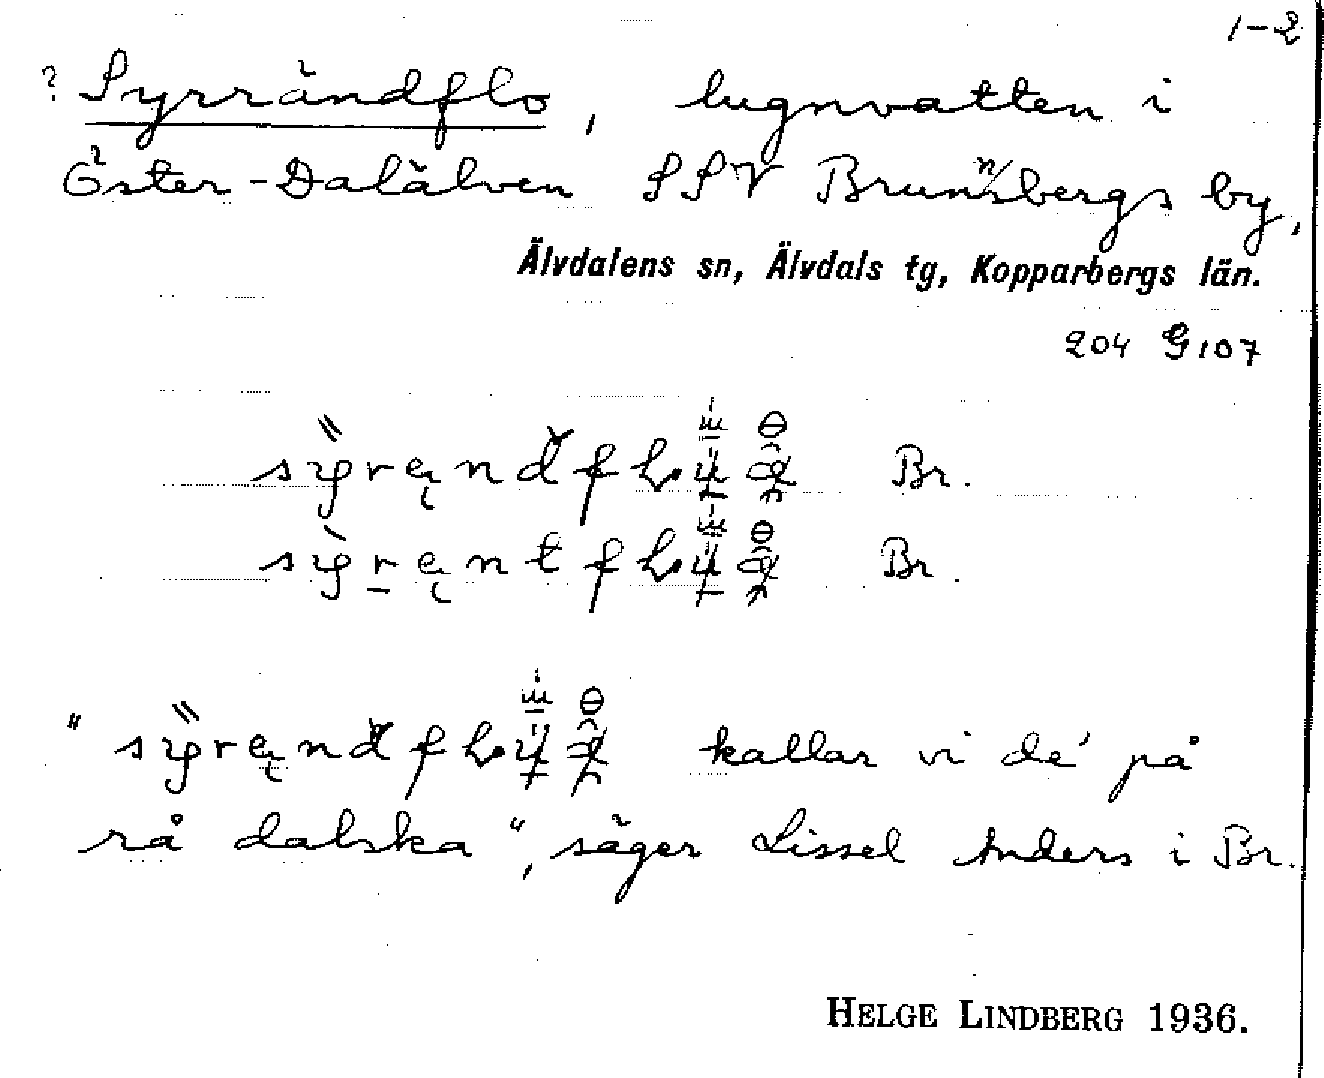 1-2
? Syrrändflo, lugnvatten i
Öster-Dalälven SSV Brunnsbergs by,
Älvdalens sn, Älvdals tg, Kopparbergs län.
204 G 107
Br.
Br.
kallar vi de' på
rå dalska", säger Lissel Anders i Br.
HELGE LINDBERG 1936.